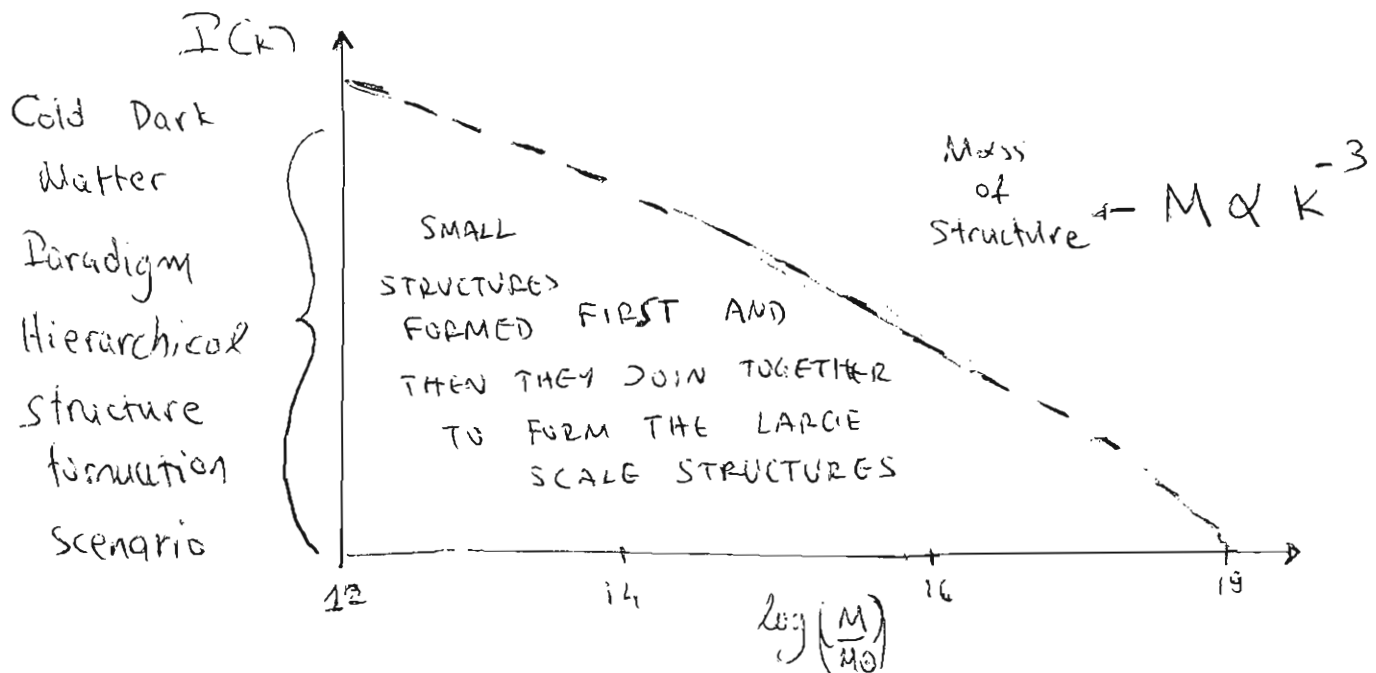 I(k)
Cold Dark
Matter
Paradigm
Hierarchical
structure
formation
scenario
SMALL
STRUCTURES
FORMED FIRST AND
THEN THEY JOIN TOGETHER
TO FORM THE LARGE
SCALE STRUCTURES
Mass
of
structure ← M ∝ K⁻³
12 14 16 19
log(M/M⊙)